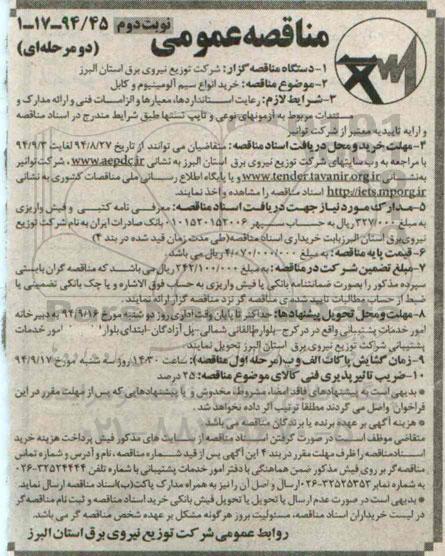 مناقصه عمومی نوبت دوم ۹۴/۴۵-۱۷-۱
(دو مرحله‌ای)
۱-دستگاه مناقصه گزار: شرکت توزیع نیروی برق استان البرز
۲-موضوع مناقصه: خرید انواع سیم آلومینیوم و کابل
۳-شرایط لازم: رعایت استانداردها، معیارها و الزامات فنی و ارائه مدارک و
مستندات مربوط به آزمونهای نوعی و تایپ تستها طبق شرایط مندرج در اسناد مناقصه
و ارایه تاییدیه معتبر از شرکت توانیر
۴-مهلت خرید و محل دریافت اسناد مناقصه: متقاضیان می توانند از تاریخ ۹۴/۸/۲۷ لغایت ۹۴/۹/۳
با مراجعه به وب سایتهای شرکت توزیع نیروی برق استان البرز به نشانی www.aepdc.ir، شرکت توانیر
به نشانی www.tender.tavanir.org.ir و یا پایگاه اطلاع رسانی ملی مناقصات کشوری به نشانی
http://iets.mporg.ir اسناد مناقصه را مشاهده و اخذ نمایند.
۵-مدارک مورد نیاز جهت دریافت اسناد مناقصه: معرفی نامه کتبی و فیش واریزی
به مبلغ ۳۲۷/۰۰۰ ریال به حساب سپهر ۰۱۰۱۵۲۰۱۵۲۰۰۶ بانک صادرات ایران به نام شرکت توزیع
نیروی برق استان البرز بابت خریداری اسناد مناقصه (طی مدت زمان قید شده در بند ۴)
۶-قیمت پایه مناقصه: به مبلغ ۴/۰۷۰/۰۰۰/۰۰۰ ریال می باشد.
۷-مبلغ تضمین شرکت در مناقصه: به مبلغ ۲۴۲/۱۰۰/۰۰۰ ریال می باشد که مناقصه گران بایستی
سپرده مذکور را بصورت ضمانتنامه بانکی یا فیش واریزی به حساب فوق الاشاره و یا چک بانکی تضمینی یا
ضبط از حساب مطالبات تایید شده ی مناقصه گر نزد مناقصه گزار ارائه نمایند.
۸-مهلت و محل تحویل پیشنهادها: حداکثر تا پایان وقت اداری روز دو شنبه مورخ ۹۴/۹/۱۶ به دبیرخانه
امور خدمات پشتیبانی واقع در کرج-بلوار طالقانی شمالی-پل آزادگان-ابتدای بلوار امور خدمات
پشتیبانی شرکت توزیع نیروی برق استان البرز تحویل نمایند.
۹-زمان گشایش پاکات الف و ب (مرحله اول مناقصه): ساعت ۱۴:۳۰ روز سه شنبه مورخ ۹۴/۹/۱۷
۱۰-ضریب تاثیرپذیری فنی کالای موضوع مناقصه: ۲۵ درصد
* بدیهی است به پیشنهادهای فاقد امضاء، مشروط، مخدوش و یا پیشنهادهایی که پس از مهلت مقرر در این
فراخوان واصل می گردند مطلقا ترتیب اثر داده نخواهد شد.
* هزینه آگهی بر عهده برنده یا برندگان مناقصه می باشد.
متقاضی موظف است در صورت گرفتن اسناد مناقصه از سایت های مذکور فیش پرداخت هزینه خرید
اسناد مناقصه را ظرف مهلت مقرر در بند ۴ این آگهی پس از قید شماره مناقصه، نام و آدرس و شماره تماس
مناقصه گر بر روی فیش مذکور ضمن هماهنگی با دفتر امور خدمات پشتیبانی با شماره تلفن ۳۲۵۲۴۴۴۴-۰۲۶
به شماره نمابر ۳۲۵۲۵۳۵۲-۰۲۶ ارسال و اصل آن را نیز به همراه مدارک پاکت (ب) اسناد مناقصه ارسال نماید.
* بدیهی است در صورت عدم ارسال یا تحویل یا تحویل فیش بانکی خرید اسناد مناقصه و ثبت نام مناقصه گر
در لیست خریداران اسناد مناقصه، مسئولیت بروز هر گونه مشکل بر عهده شخص مناقصه گر می باشد.
روابط عمومی شرکت توزیع نیروی برق استان البرز